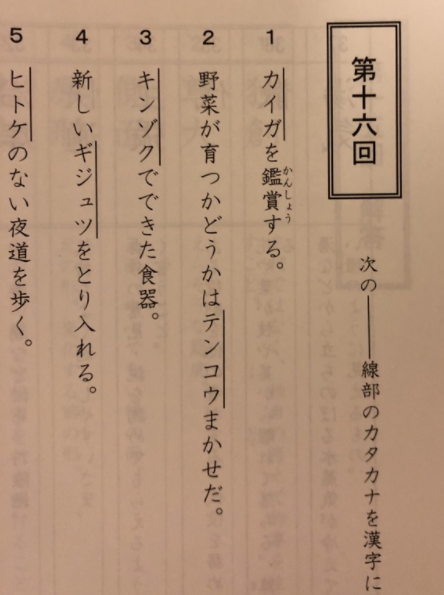 第十六回
次の――線部のカタカナを漢字に
1 カイガを鑑賞かんしょうする。
2 野菜が育つかどうかはテンコウまかせだ。
3 キンゾクでできた食器。
4 新しいギジュツをとり入れる。
5 ヒトケのない夜道を歩く。